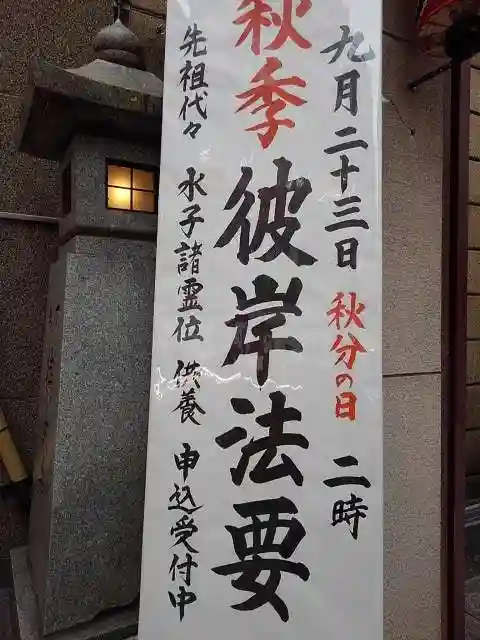 九月二十三日 秋分の日 二時
秋季彼岸法要
先祖代々 水子諸霊位 供養 申込受付中